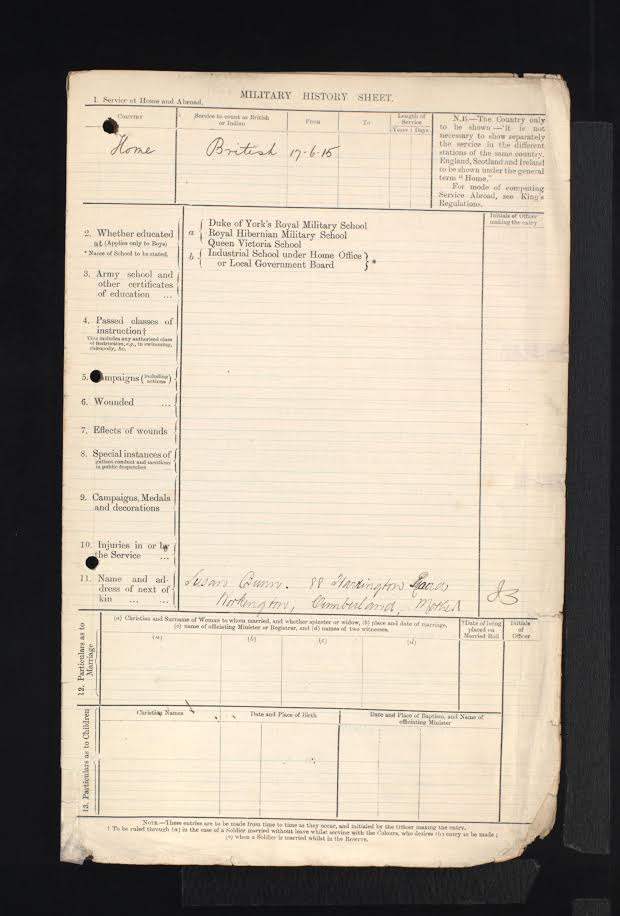 MILITARY HISTORY SHEET.
1 Service at Home and Abroad.
Country
Service to count as British or Indian
From
To
Length of Service
Years Days
Home British 17-6-15
N.B.—The Country only
to be shown—it is not
necessary to show separately
the service in the different
stations of the same country.
England, Scotland and Ireland
to be shown under the general
term "Home."
For mode of computing
Service Abroad, see King's
Regulations.
Initials of Officer
making the entry
2. Whether educated
at (Applies only to Boys)
* Name of School to be stated.
a
Duke of York's Royal Military School
Royal Hibernian Military School
Queen Victoria School
b
Industrial School under Home Office
or Local Government Board
*
3. Army school and
other certificates
of education ...
4. Passed classes of
instruction†
This includes any authorised class
of instruction, e.g., in swimming,
chiropody, &c.
5. mpaigns (including actions)
6. Wounded ...
7. Effects of wounds
8. Special instances of
gallant conduct and mentions
in public despatches
9. Campaigns, Medals
and decorations
10. Injuries in or by
the Service ...
11. Name and ad-
dress of next of
kin ... ...
Susan Quinn. 88 Harrington Road
Workington, Cumberland, Mother
12. Particulars as to
Marriage
(a) Christian and Surname of Woman to whom married, and whether spinster or widow, (b) place and date of marriage,
(c) name of officiating Minister or Registrar, and (d) names of two witnesses.
(a) (b) (c) (d)
†Date of being
placed on
Married Roll
Initials
of
Officer
13. Particulars as to Children
Christian Names
Date and Place of Birth
Date and Place of Baptism, and Name of
officiating Minister
NOTE.—These entries are to be made from time to time as they occur, and initialed by the Officer making the entry.
† To be ruled through (a) in the case of a Soldier married without leave whilst serving with the Colours, who desires the entry to be made;
(b) when a Soldier is married whilst in the Reserve.